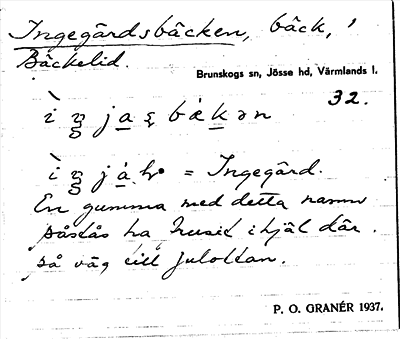 Ingegärdsbäcken, bäck,
Bäckelid.
Brunskogs sn, Jösse hd, Värmlands l.
32.
= Ingegärd.
En gumma med detta namn
påstås ha frusit ihjäl där
på väg till julottan.
P. O. GRANÉR 1937.